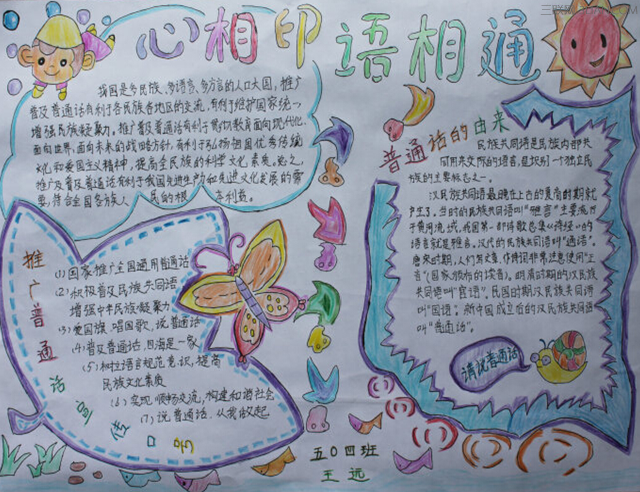 心相印 语相通
我国是多民族、多语言、多方言的人口大国，推广
普及普通话有利于各民族各地区的交流，有利于维护国家统一
增强民族凝聚力。推广普及普通话有利于贯彻教育面向现代化，
面向世界，面向未来的战略方针，有利于弘扬祖国优秀传统
文化和爱国主义精神，提高全民族的科学文化素质。总之，
推广及普及普通话有利于我国先进生产力和先进文化发展的需
要，符合全国各族人民的根本利益。
推广普通话宣传口号
(1) 国家推广全国通用普通话
(2) 积极普及民族共同语
增强中华民族凝聚力
(3) 爱国旗，唱国歌，说普通话
(4) 普及普通话，四海是一家
(5) 树立语言规范意识，提高
民族文化素质
(6) 实现顺畅交流，构建和谐社会
(7) 说普通话，从我做起
普通话的由来
民族共同语是民族内部共
同用来交际的语言，是识别一个独立民
族的主要标志之一。
汉民族共同语最晚在上古的夏商时期就
产生了。当时的民族共同语叫“雅言”主要流行
于黄河流域，我国第一部诗歌总集《诗经》的
语言就是雅言。汉代的民族共同语叫“通语”。
唐宋时期，人们写文章、作诗词非常注意使用“正
音”(国家颁布的读音)。明清时期的汉民族共
同语叫“官话”。民国时期汉民族共同语
叫“国语”。新中国成立后的汉民族共同语
叫“普通话”。
请说普通话
五〇四班
王远